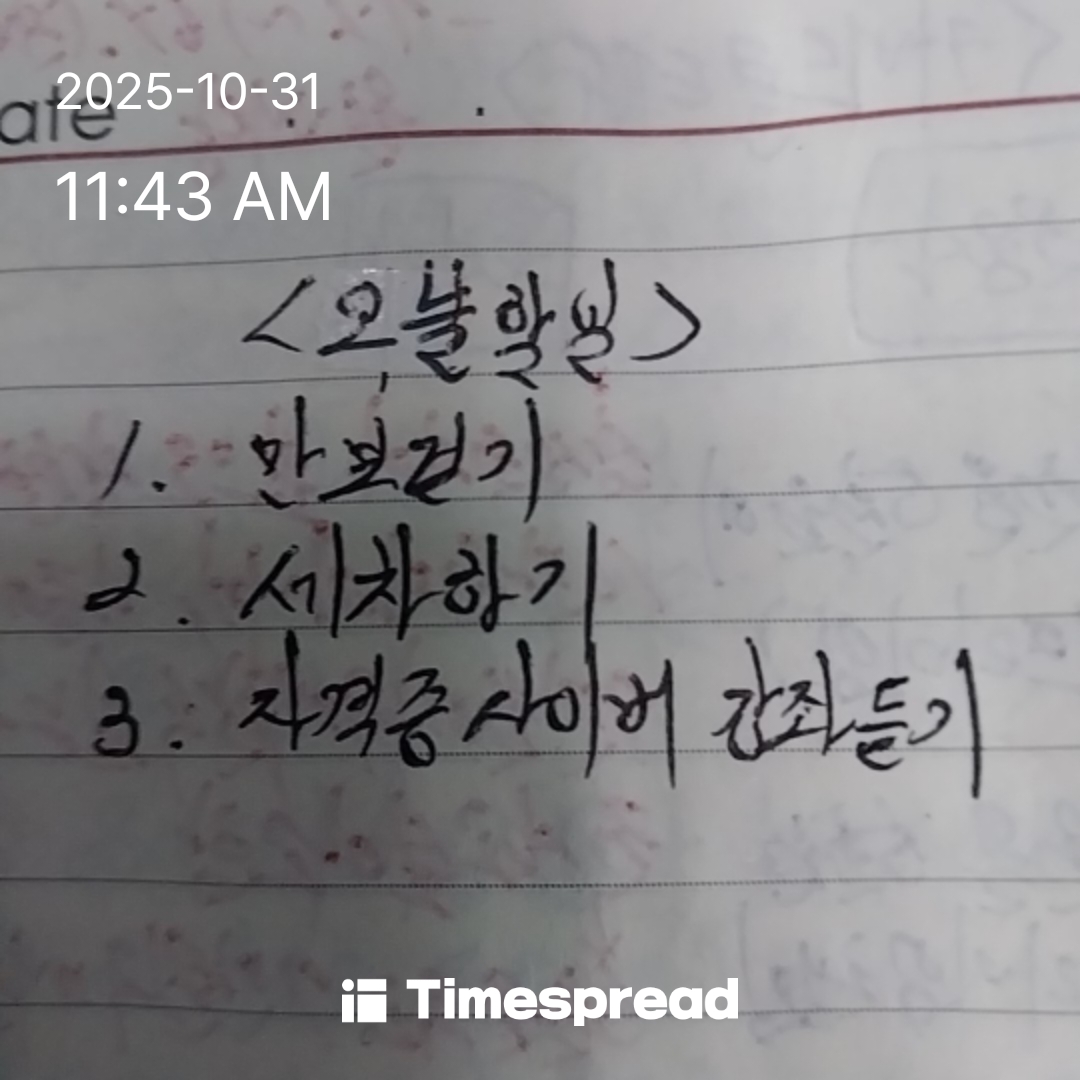 2025-10-31
ate
11:43 AM
<오늘 할일>
1. 만보걷기
2. 세차하기
3. 자격증 사이버 강좌듣기
Timespread